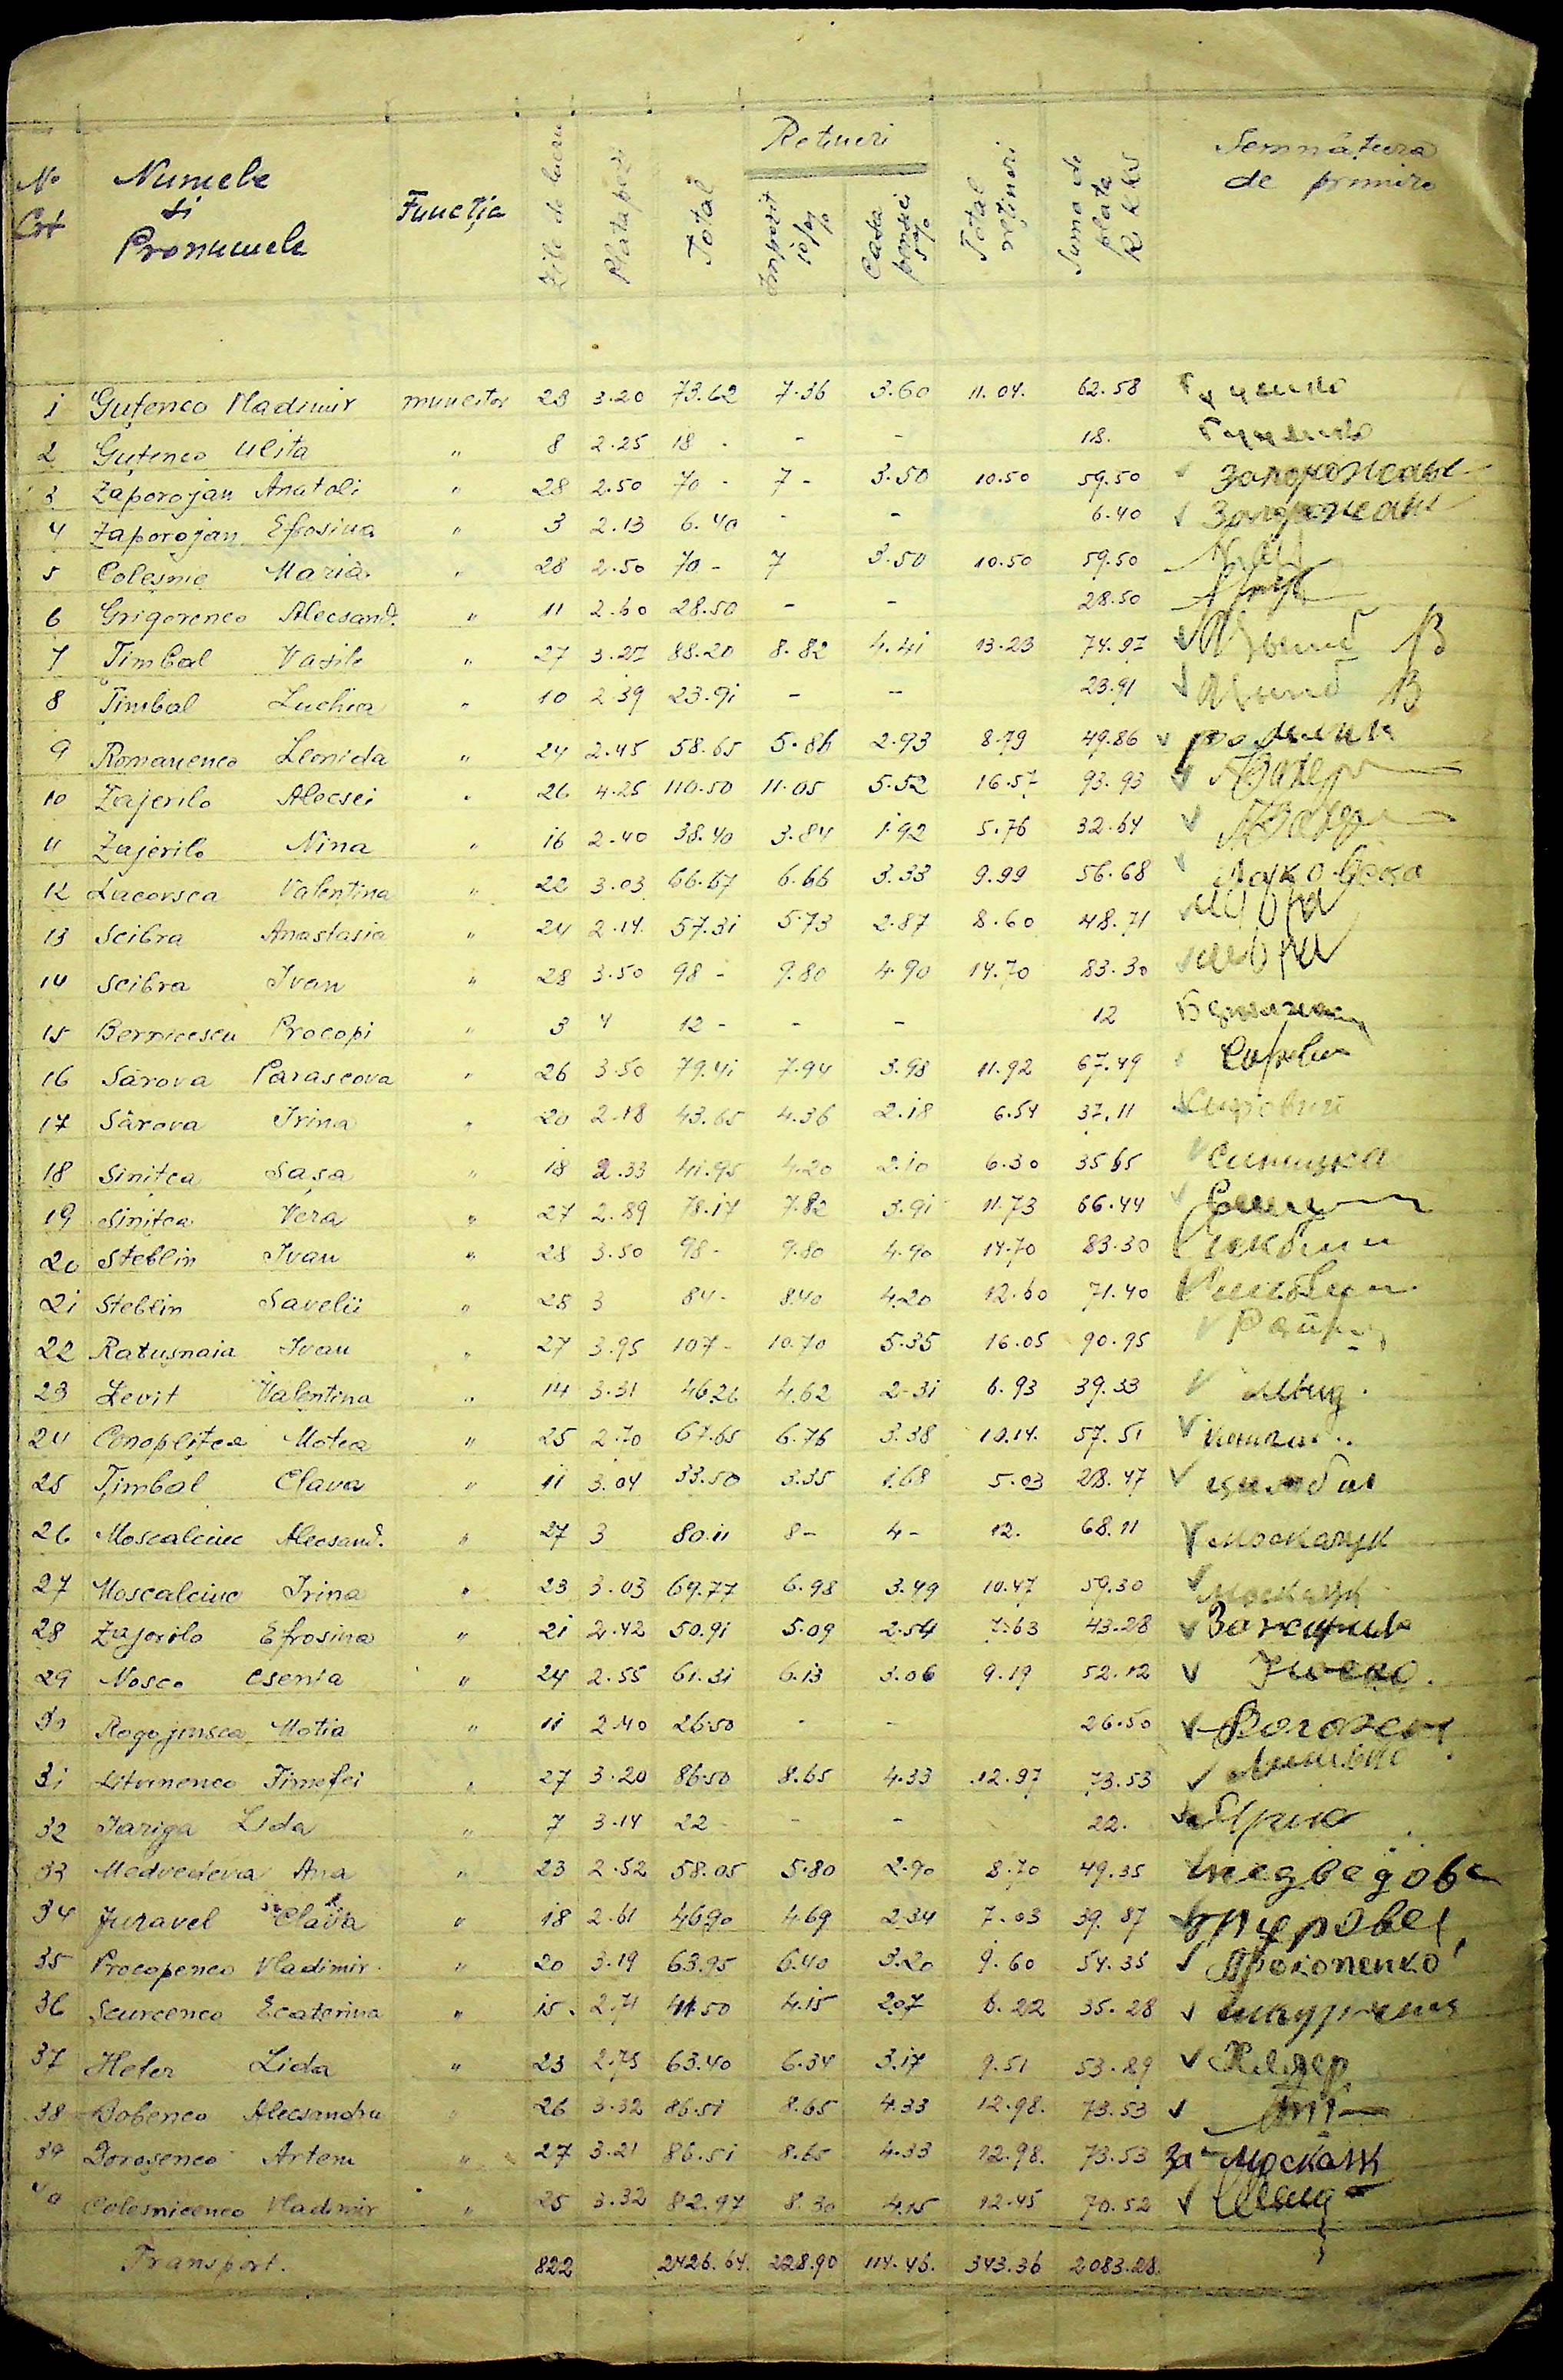 No Crt Numele și Pronumele Funcția Zile de lucru Plata pe zi Total Rețineri Impozit 10% Casa pensiei 5% Total rețineri Suma de plata R.K.K.S Semnătura de primire
1 Guțenco Vladimir muncitor 23 3.20 73.62 7.36 3.60 11.04. 62.58 Гуценко
2 Guțenco Ulita " 8 2.25 18 - - - 18. Гуценко
3 Zaporojan Anatoli " 28 2.50 70 - 7 - 3.50 10.50 59.50 Запорожсан
4 Zaporojan Efrosina " 3 2.13 6.40 - - 6.40 Запорожсан
5 Colesnic Maria " 28 2.50 70 - 7 3.50 10.50 59.50
6 Grigorenco Alecsand. " 11 2.60 28.50 - - 28.50
7 Țimbal Vasile " 27 3.27 88.20 8.82 4.41 13.23 74.97 В
8 Țimbal Luchia " 10 2.39 23.91 - - 23.91 В
9 Romanenco Leonida " 24 2.45 58.65 5.86 2.93 8.79 49.86
10 Zajerilo Alecsei " 26 4.25 110.50 11.05 5.52 16.57 93.93
11 Zajerilo Nina " 16 2.40 38.40 3.84 1.92 5.76 32.64
12 Lucovsca Valentina " 22 3.03 66.67 6.66 3.33 9.99 56.68
13 Scibra Anastasia " 24 2.14. 57.31 5.73 2.87 8.60 48.71
14 Scibra Ivan " 28 3.50 98 - 9.80 4.90 14.70 83.30
15 Bernicescu Procopi " 3 4 12 - - - 12
16 Sârova Parascova " 26 3.50 79.41 7.94 3.98 11.92 67.49
17 Sârova Irina " 20 2.18 43.65 4.36 2.18 6.54 37.11
18 Sinițca Sașa " 18 2.33 41.95 4.20 2.10 6.30 35 65 Синицка
19 Sinițca Vera " 27 2.89 78.17 7.82 3.91 11.73 66.44
20 Steblin Ivan " 28 3.50 98 - 9.80 4.90 14.70 83.30
21 Steblin Savelii " 28 3 84 - 8.40 4.20 12.60 71.40
22 Ratușnaia Ivan " 27 3.95 107 - 10.70 5.35 16.05 90.95
23 Levit Valentina " 14 3.31 46.26 4.62 2.31 6.93 39.33
24 Conoplițca Motea " 25 2.70 67.65 6.76 3.38 10.14. 57.51
25 Țimbal Clava " 11 3.04 33.50 3.35 1.68 5.03 28.47 цимбал
26 Moscalciuc Alecsand. " 27 3 80.11 8 - 4 - 12. 68.11 Москалук
27 Moscalciuc Irina " 23 3.03 69.77 6.98 3.49 10.47 59.30
28 Zajerilo Efrosina " 21 2.42 50.91 5.09 2.54 7.63 43.28
29 Nosco Csenia " 24 2.55 61.31 6.13 3.06 9.19 52.12
30 Rogojinsca Motia " 11 2.40 26.50 - - 26.50
31 Litvinenco Timofei " 27 3.20 86.50 8.65 4.33 12.97 73.53
32 Iariga Lida " 7 3.14 22 - - - 22.
33 Medvedeva Ana " 23 2.52 58.05 5.80 2.90 8.70 49.35 медведова
34 Juravel Clava " 18 2.61 46.90 4.69 2.34 7.03 39.87
35 Procopenco Vladimir. " 20 3.19 63.95 6.40 3.20 9.60 54.35 Прокопенко
36 Scurcenco Ecaterina " 15. 2.71 41.50 4.15 2.07 6.22 35.28
37 Heler Lida " 23 2.75 63.40 6.34 3.17 9.51 53.89
38 Bobenco Alecsandra " 26 3.32 86.51 8.65 4.33 12.98. 73.53
39 Doroșenco Artem " 27 3.21 86.51 8.65 4.33 12.98. 73.53 За Москалк
40 Colesnicenco Vladimir " 25 3.32 82.97 8.30 4.15 12.45 70.52
Transport. 822 2426.64. 228.90 114.46. 343.36 2083.28.